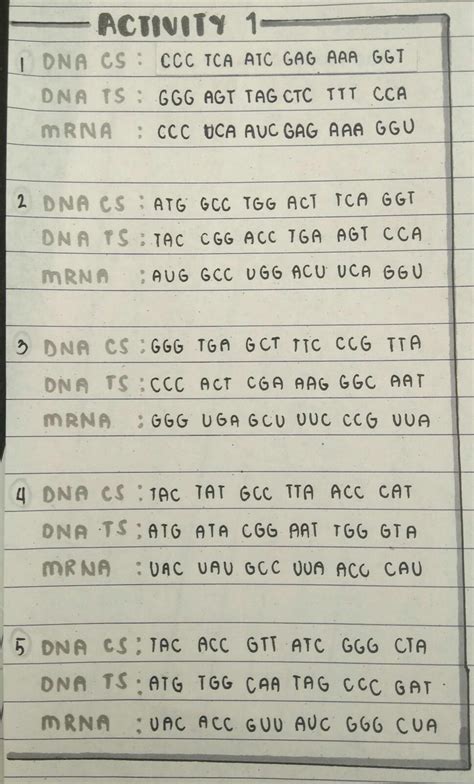 ACTIVITY 1
1 DNA CS : CCC TCA ATC GAG AAA GGT
DNA TS : GGG AGT TAG CTC TTT CCA
mRNA : CCC UCA AUC GAG AAA GGU
2 DNA CS : ATG GCC TGG ACT TCA GGT
DNA TS : TAC CGG ACC TGA AGT CCA
mRNA : AUG GCC UGG ACU UCA GGU
3 DNA CS : GGG TGA GCT TTC CCG TTA
DNA TS : CCC ACT CGA AAG GGC AAT
mRNA : GGG UGA GCU UUC CCG UUA
4 DNA CS : TAC TAT GCC TTA ACC CAT
DNA TS : ATG ATA CGG AAT TGG GTA
mRNA : UAC UAU GCC UUA ACC CAU
5 DNA CS : TAC ACC GTT ATC GGG CTA
DNA TS : ATG TGG CAA TAG CCC GAT
mRNA : UAC ACC GUU AUC GGG CUA